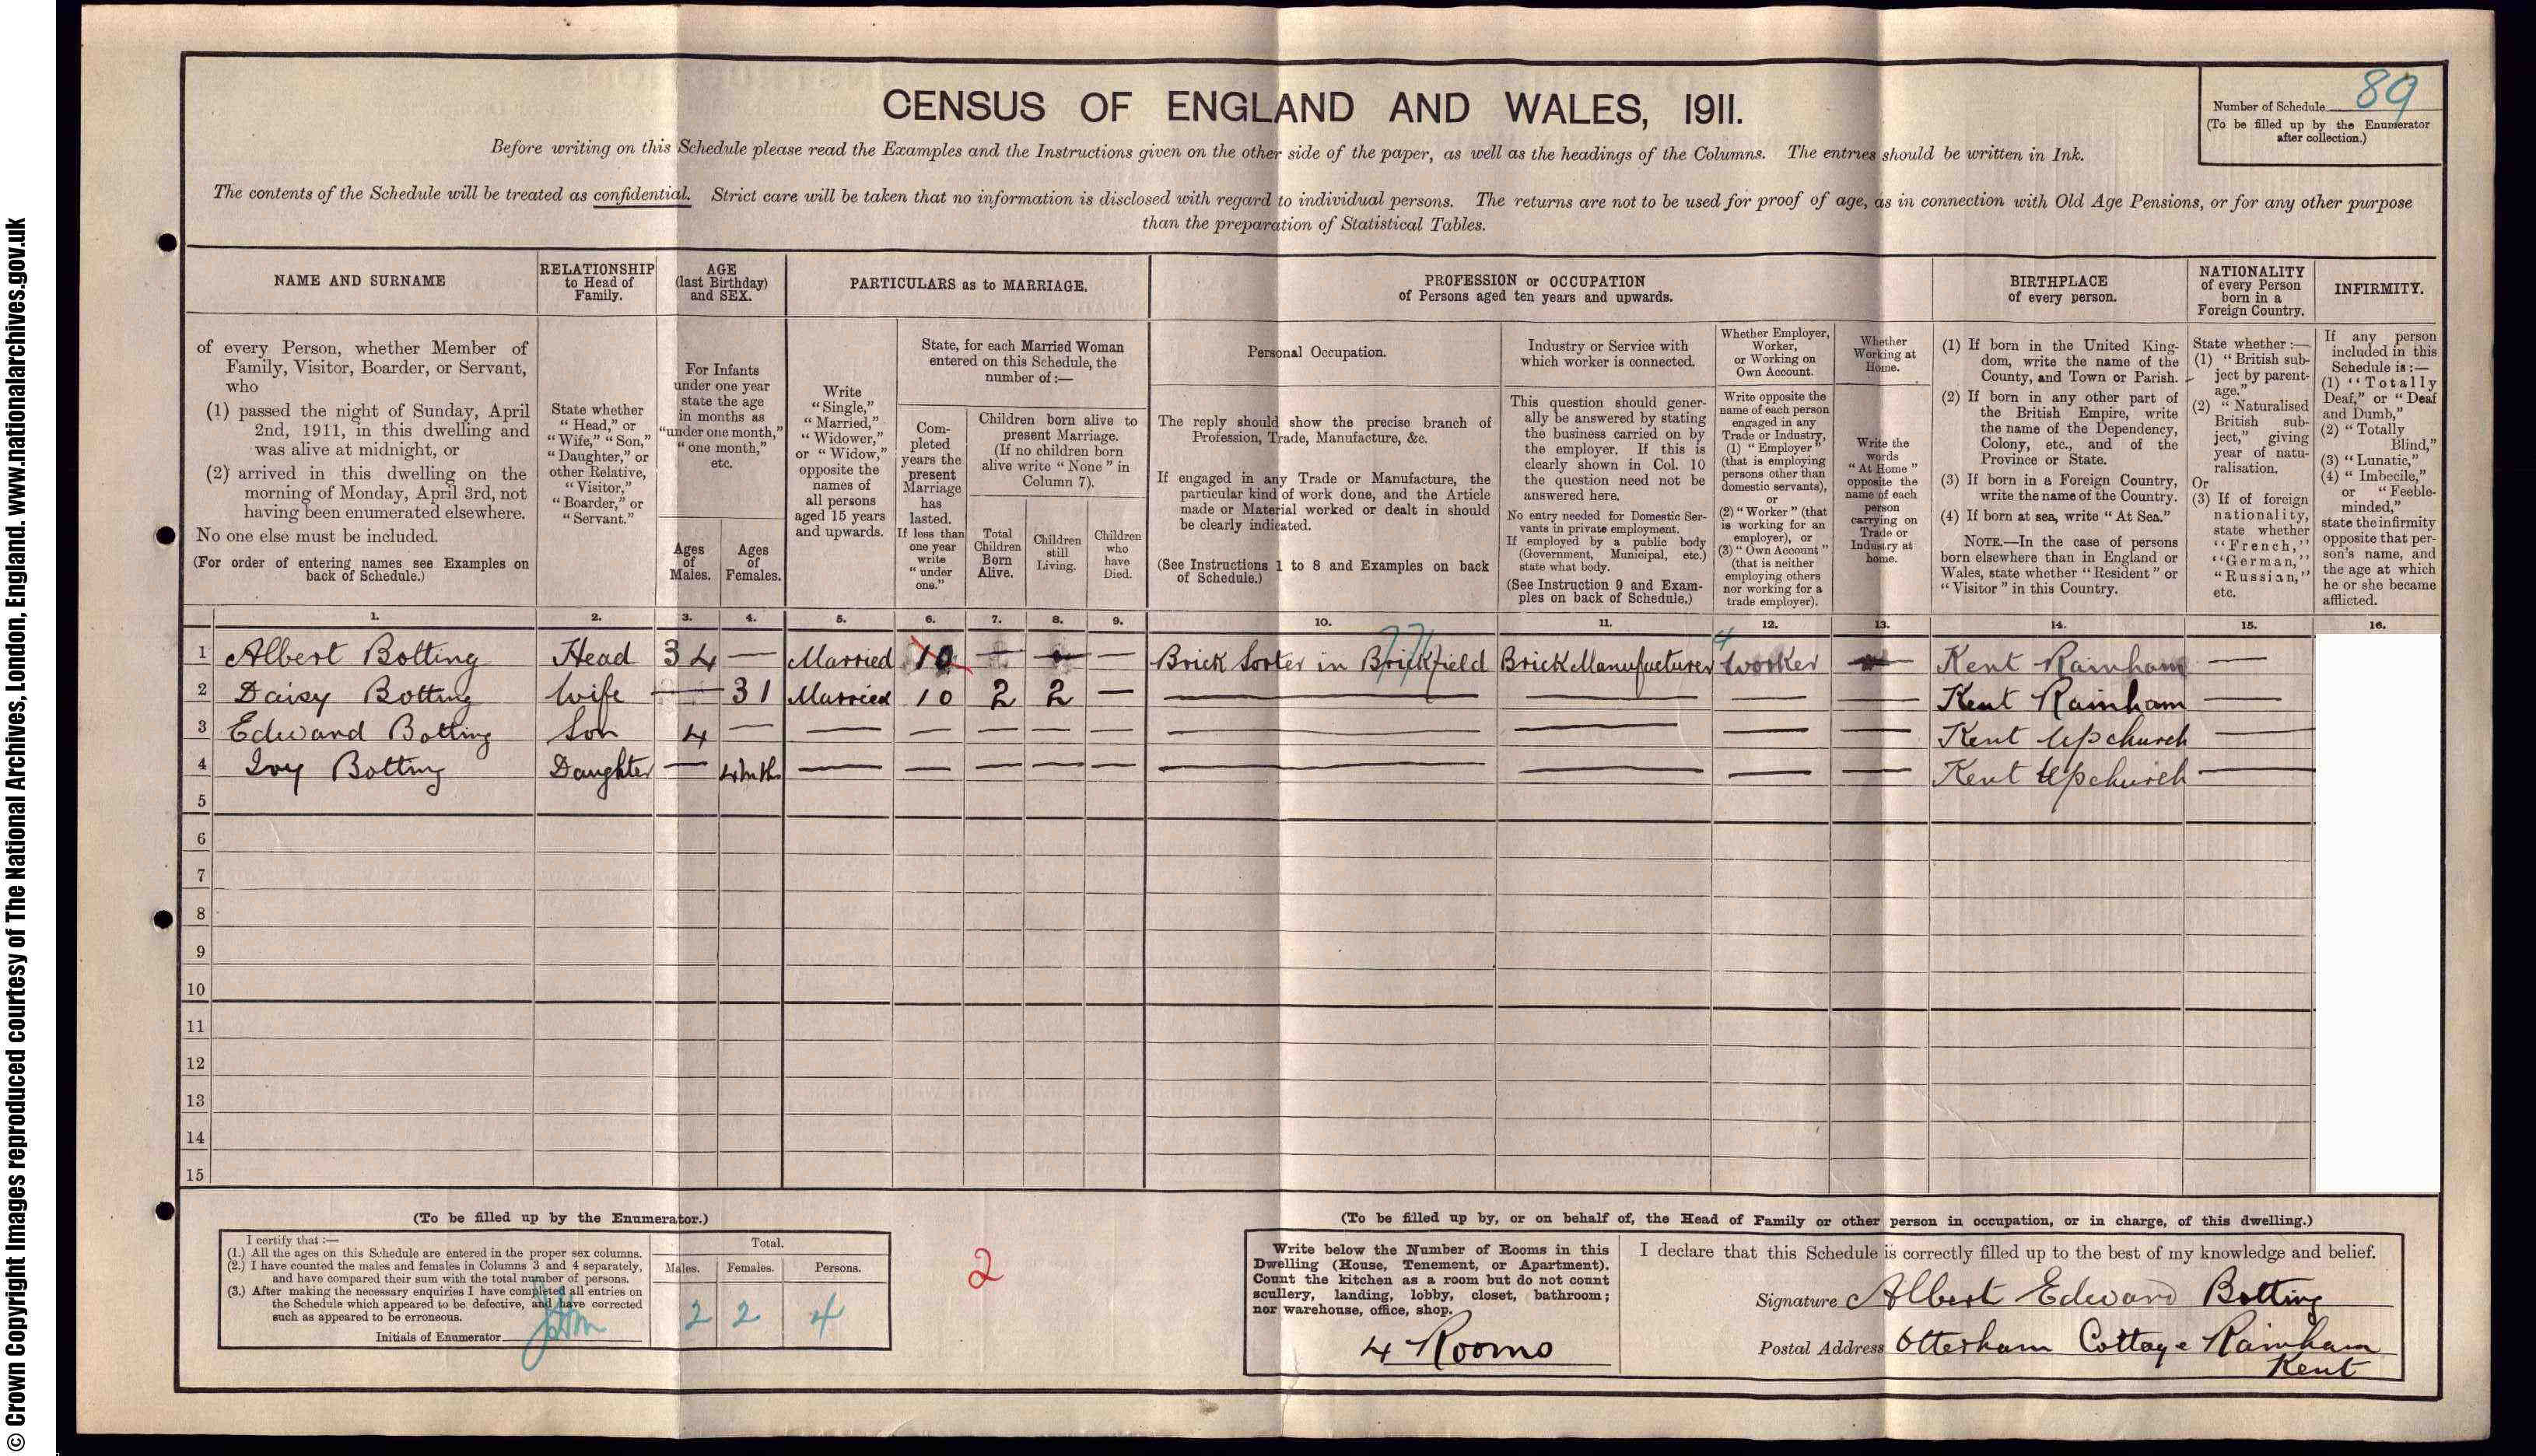 © Crown Copyright Images reproduced courtesy of The National Archives, London, England. www.nationalarchives.gov.uk
CENSUS OF ENGLAND AND WALES, 1911.
Number of Schedule 89
(To be filled up by the Enumerator
after collection.)
Before writing on this Schedule please read the Examples and the Instructions given on the other side of the paper, as well as the headings of the Columns. The entries should be written in Ink.
The contents of the Schedule will be treated as confidential. Strict care will be taken that no information is disclosed with regard to individual persons. The returns are not to be used for proof of age, as in connection with Old Age Pensions, or for any other purpose
than the preparation of Statistical Tables.
NAME AND SURNAME
of every Person, whether Member of
Family, Visitor, Boarder, or Servant,
who
(1) passed the night of Sunday, April
2nd, 1911, in this dwelling and
was alive at midnight, or
(2) arrived in this dwelling on the
morning of Monday, April 3rd, not
having been enumerated elsewhere.
No one else must be included.
(For order of entering names see Examples on
back of Schedule.)
RELATIONSHIP
to Head of
Family.
State whether
"Head," or
"Wife," "Son,"
"Daughter," or
other Relative,
"Visitor,"
"Boarder," or
"Servant."
AGE
(last Birthday)
and SEX.
For Infants
under one year
state the age
in months as
"under one month,"
"one month,"
etc.
Ages
of
Males.
Ages
of
Females.
PARTICULARS as to MARRIAGE.
Write
"Single,"
"Married,"
"Widower,"
or "Widow,"
opposite the
names of
all persons
aged 15 years
and upwards.
State, for each Married Woman
entered on this Schedule, the
number of:—
Com-
pleted
years the
present
Marriage
has
lasted.
If less than
one year
write
"under
one."
Children born alive to
present Marriage.
(If no children born
alive write "None" in
Column 7).
Total
Children
Born
Alive.
Children
still
Living.
Children
who
have
Died.
PROFESSION or OCCUPATION
of Persons aged ten years and upwards.
Personal Occupation.
The reply should show the precise branch of
Profession, Trade, Manufacture, &c.
If engaged in any Trade or Manufacture, the
particular kind of work done, and the Article
made or Material worked or dealt in should
be clearly indicated.
(See Instructions 1 to 8 and Examples on back
of Schedule.)
Industry or Service with
which worker is connected.
This question should gener-
ally be answered by stating
the business carried on by
the employer. If this is
clearly shown in Col. 10
the question need not be
answered here.
No entry needed for Domestic Ser-
vants in private employment.
If employed by a public body
(Government, Municipal, etc.)
state what body.
(See Instruction 9 and Exam-
ples on back of Schedule.)
Whether Employer,
Worker,
or Working on
Own Account.
Write opposite the
name of each person
engaged in any
Trade or Industry,
(1) "Employer"
(that is employing
persons other than
domestic servants),
or
(2) "Worker" (that
is working for an
employer), or
(3) "Own Account"
(that is neither
employing others
nor working for a
trade employer).
Whether
Working at
Home.
Write the
words
"At Home"
opposite the
name of each
person
carrying on
Trade or
Industry at
home.
BIRTHPLACE
of every person.
(1) If born in the United King-
dom, write the name of the
County, and Town or Parish.
(2) If born in any other part of
the British Empire, write
the name of the Dependency,
Colony, etc., and of the
Province or State.
(3) If born in a Foreign Country,
write the name of the Country.
(4) If born at sea, write "At Sea."
NOTE.—In the case of persons
born elsewhere than in England or
Wales, state whether "Resident" or
"Visitor" in this Country.
NATIONALITY
of every Person
born in a
Foreign Country.
State whether:—
(1) "British sub-
ject by parent-
age."
(2) "Naturalised
British sub-
ject," giving
year of natu-
ralisation.
Or
(3) If of foreign
nationality,
state whether
"French,"
"German,"
"Russian,"
etc.
INFIRMITY.
If any person
included in this
Schedule is:—
(1) "Totally
Deaf," or "Deaf
and Dumb,"
(2) "Totally
Blind,"
(3) "Lunatic,"
(4) "Imbecile,"
or "Feeble-
minded,"
state the infirmity
opposite that per-
son's name, and
the age at which
he or she became
afflicted.
1. 2. 3. 4. 5. 6. 7. 8. 9. 10. 11. 12. 13. 14. 15. 16.
1 Albert Botting Head 34 — Married 10 — — Brick Sorter in Brickfield 77 Brick Manufacturer 4 Worker — Kent Rainham —
2 Daisy Botting Wife — 31 Married 10 2 2 — — — — — Kent Rainham —
3 Edward Botting Son 4 — — — — — — — — — — Kent Upchurch —
4 Ivy Botting Daughter — 4 mth — — — — — — — — — Kent Upchurch —
5
6
7
8
9
10
11
12
13
14
15
(To be filled up by the Enumerator.)
I certify that:—
(1.) All the ages on this Schedule are entered in the proper sex columns.
(2.) I have counted the males and females in Columns 3 and 4 separately,
and have compared their sum with the total number of persons.
(3.) After making the necessary enquiries I have completed all entries on
the Schedule which appeared to be defective, and have corrected
such as appeared to be erroneous.
Initials of Enumerator
Total.
Males. Females. Persons.
2 2 4
2
(To be filled up by, or on behalf of, the Head of Family or other person in occupation, or in charge, of this dwelling.)
Write below the Number of Rooms in this
Dwelling (House, Tenement, or Apartment).
Count the kitchen as a room but do not count
scullery, landing, lobby, closet, bathroom;
nor warehouse, office, shop.
4 Rooms
I declare that this Schedule is correctly filled up to the best of my knowledge and belief.
Signature Albert Edward Botting
Postal Address Otterham Cottage Rainham
Kent